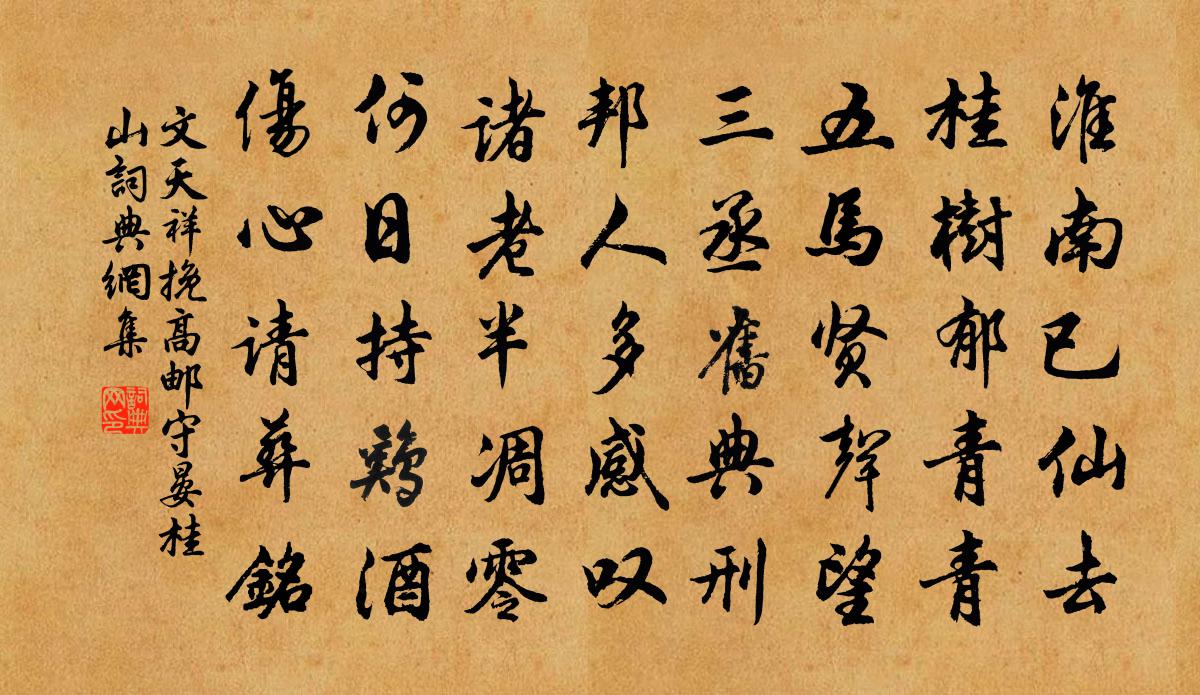 淮南已仙去
桂樹郁青青
五馬贤聲望
三丞舊典刑
邦人多感叹
诸老半凋零
何日持鷄酒
傷心请葬銘
文天祥挽高邮守晏桂
山詞典網集
詞典网印